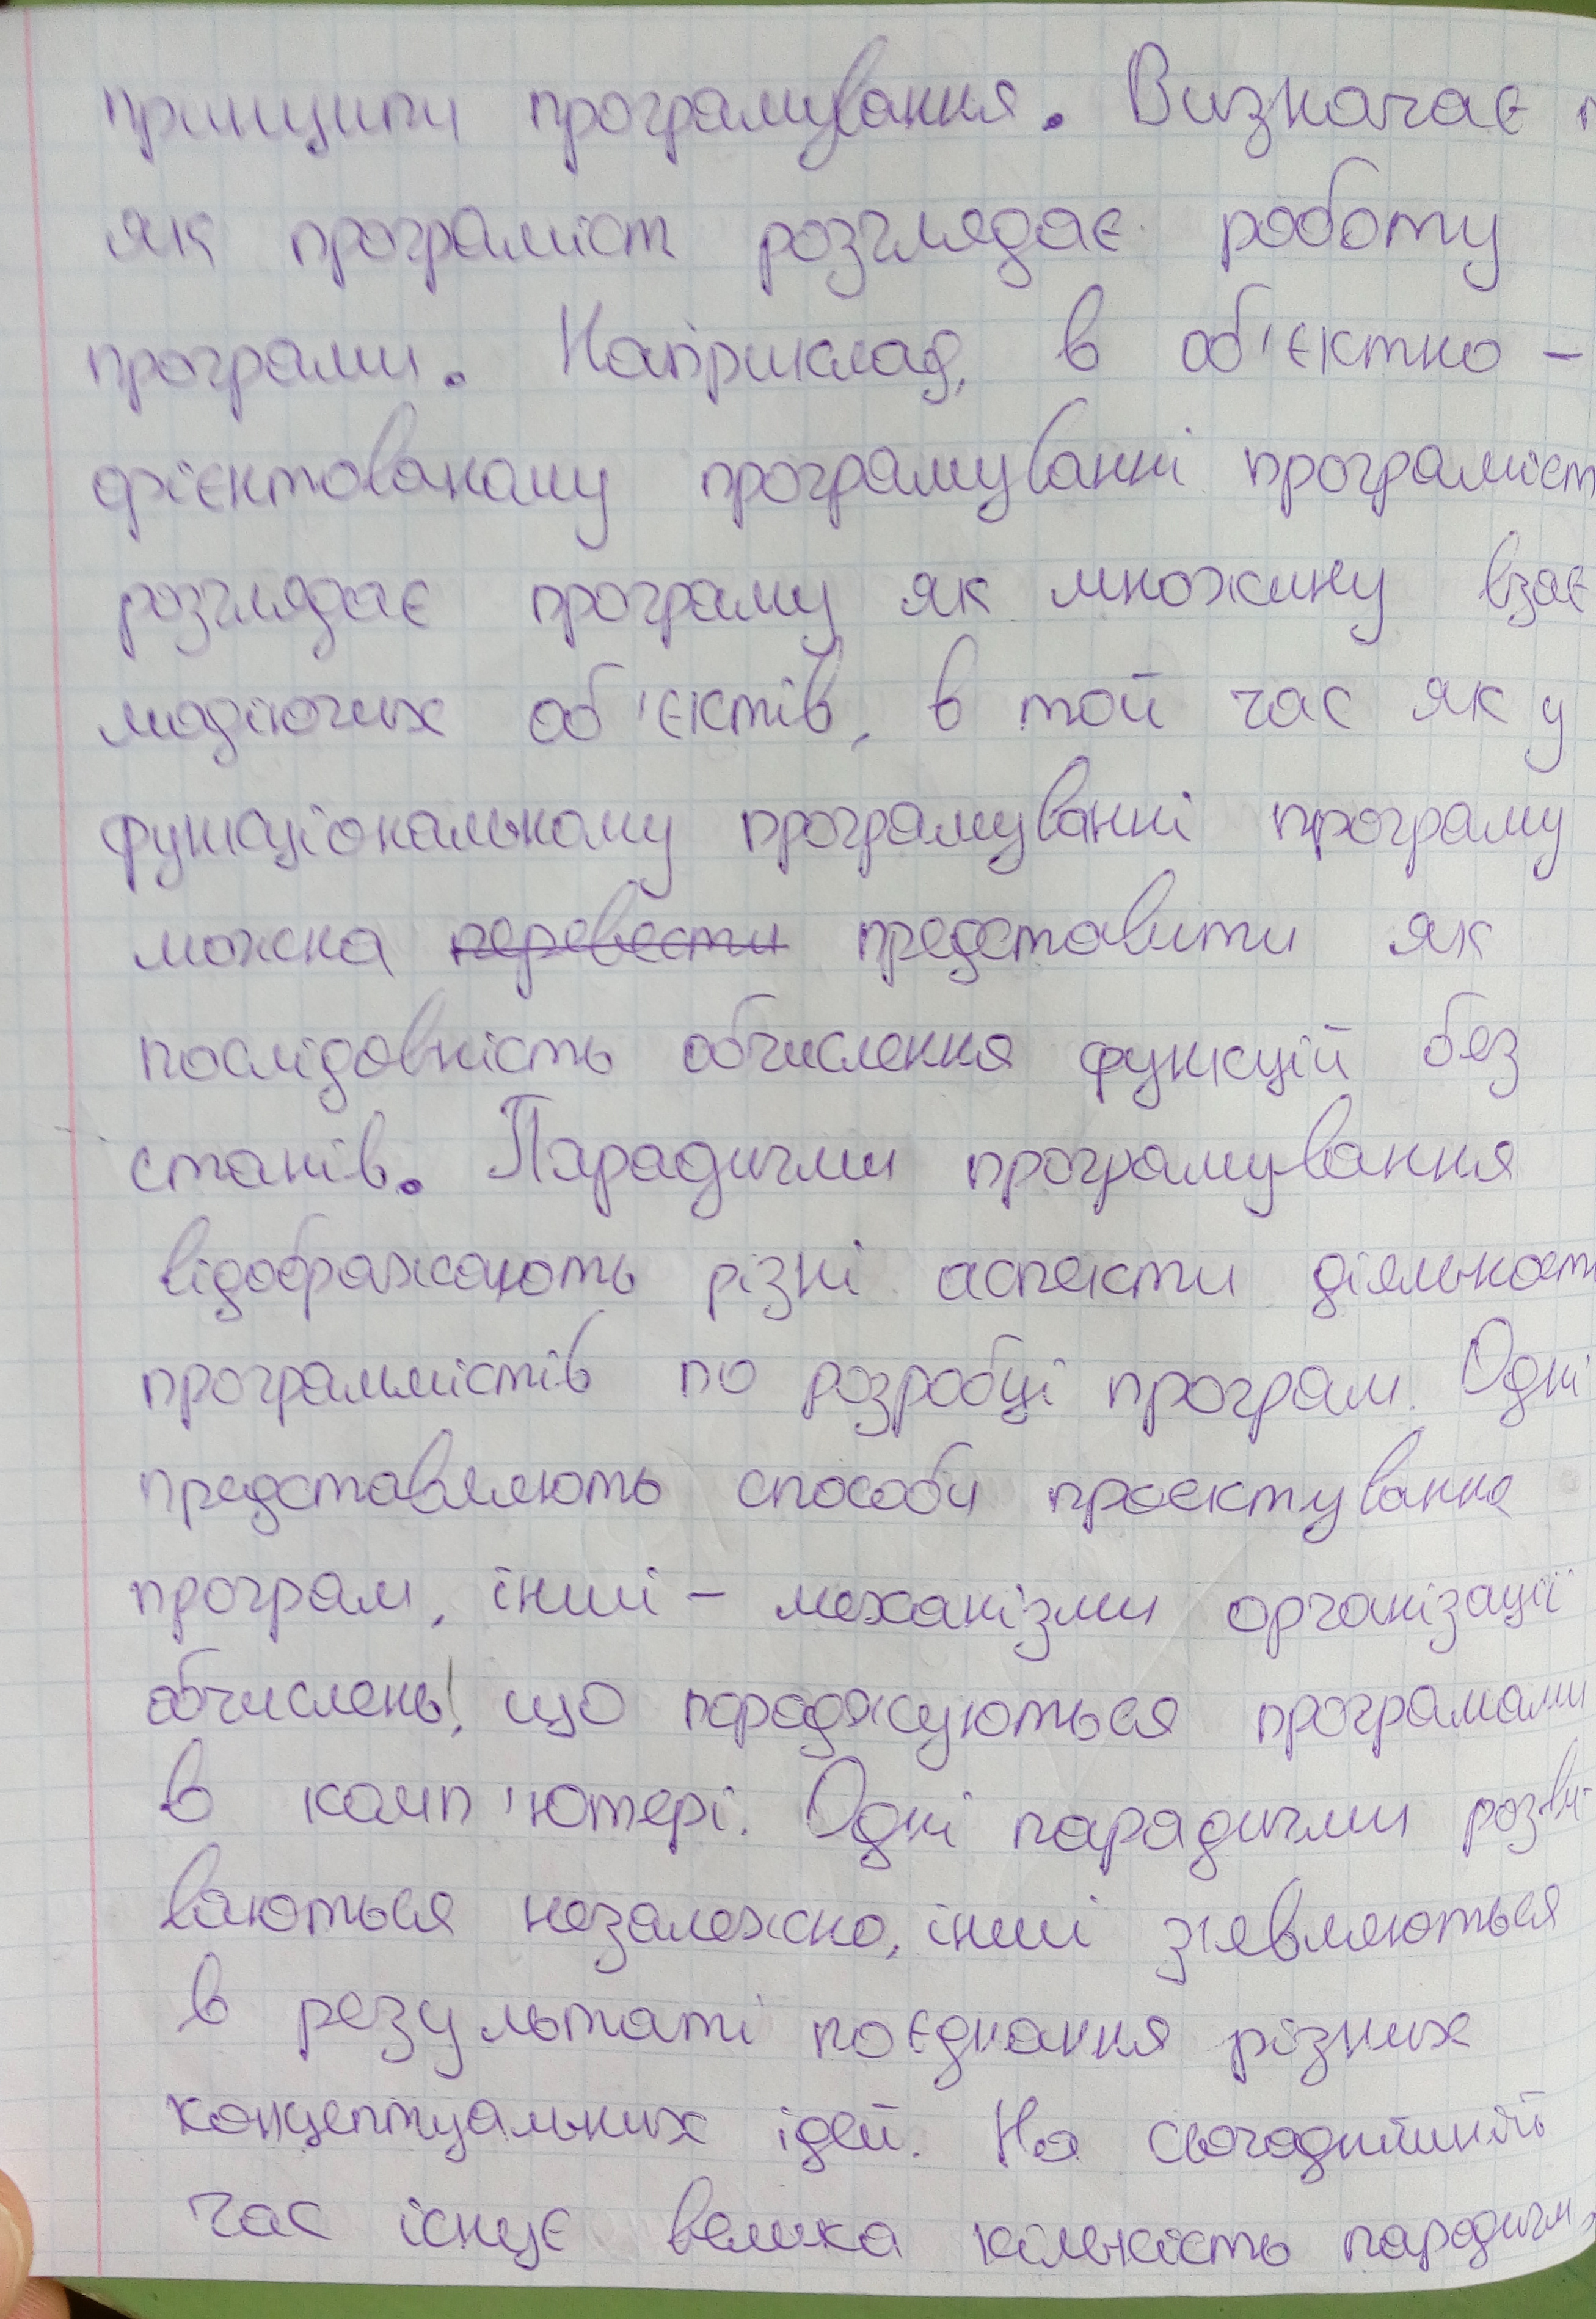 принципи програмування. Визначає
як програміст розглядає роботу
програми. Наприклад, в об'єктно-
орієнтованому програмуванні програміст
розглядає програму як множину взає
модіючих об'єктів, в той час як у
функціональному програмуванні програму
можна перевести представити як
послідовність обчислення функцій без
станів. Парадигми програмування
відображають різні аспекти діяльності
программістів по розробці програм. Одні
представляють способи проєктування
програм, інші - механізми організації
обчислень, що породжуються програмами
в комп'ютері. Одні парадигми розви-
ваються незалежно, інші з'являються
в результаті поєднання різних
концептуальних ідей. На сьогоднішній
час існує велика кількість парадигм,